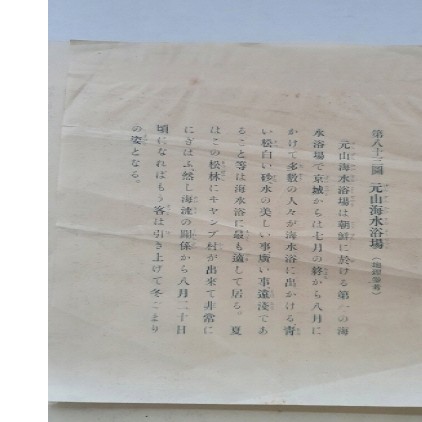 第八十三圖 元山海水浴場 (地理參考)
元山海水浴場は朝鮮に於ける第一の海
水浴場で京城からは七月の終から八月に
かけて多數の人々が海水浴に出かける靑
い松白い砂水の美しい事廣い事遠淺であ
ること等は海水浴に最も適して居る。夏
はこの松林にキャンプ村が出來て非常に
にぎはふ然し海流の關係から八月二十日
頃になればもう客は引き上げて冬ごもり
の姿となる。